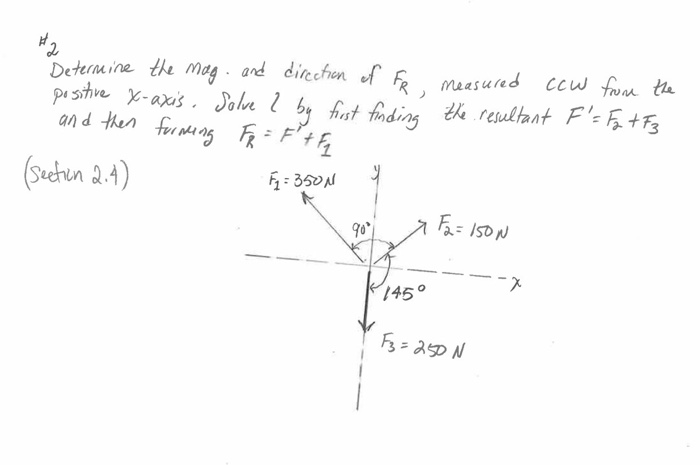 #2
Determine the mag. and direction of FR, measured CCW from the
positive x-axis. Solve by first finding the resultant F' = F2 + F3
and then forming FR = F' + F1
(Section 2.4)
F1 = 350 N
y
90°
F2 = 150 N
x
145°
F3 = 250 N